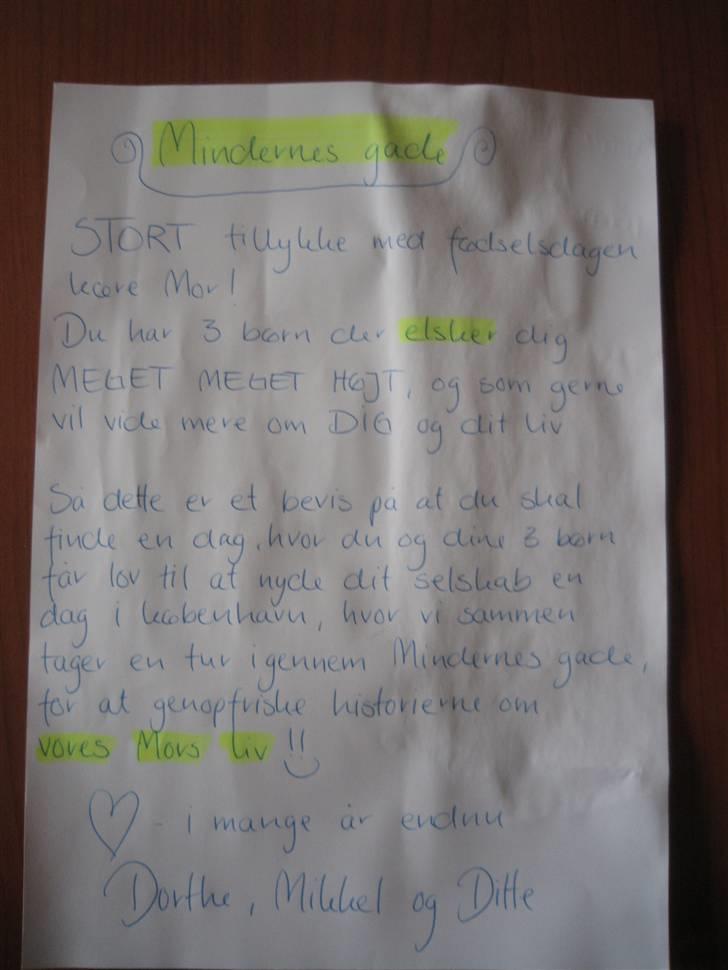 Mindernes gade
STORT tillykke med fødselsdagen
kære Mor!
Du har 3 børn der elsker dig
MEGET MEGET HØJT, og som gerne
vil vide mere om DIG og dit liv
Så dette er et bevis på at du skal
finde en dag, hvor du og dine 3 børn
får lov til at nyde dit selskab en
dag i københavn, hvor vi sammen
tager en tur igennem Mindernes gade,
for at genopfriske historierne om
vores Mors liv !!
- i mange år endnu
Dorthe, Mikkel og Ditte